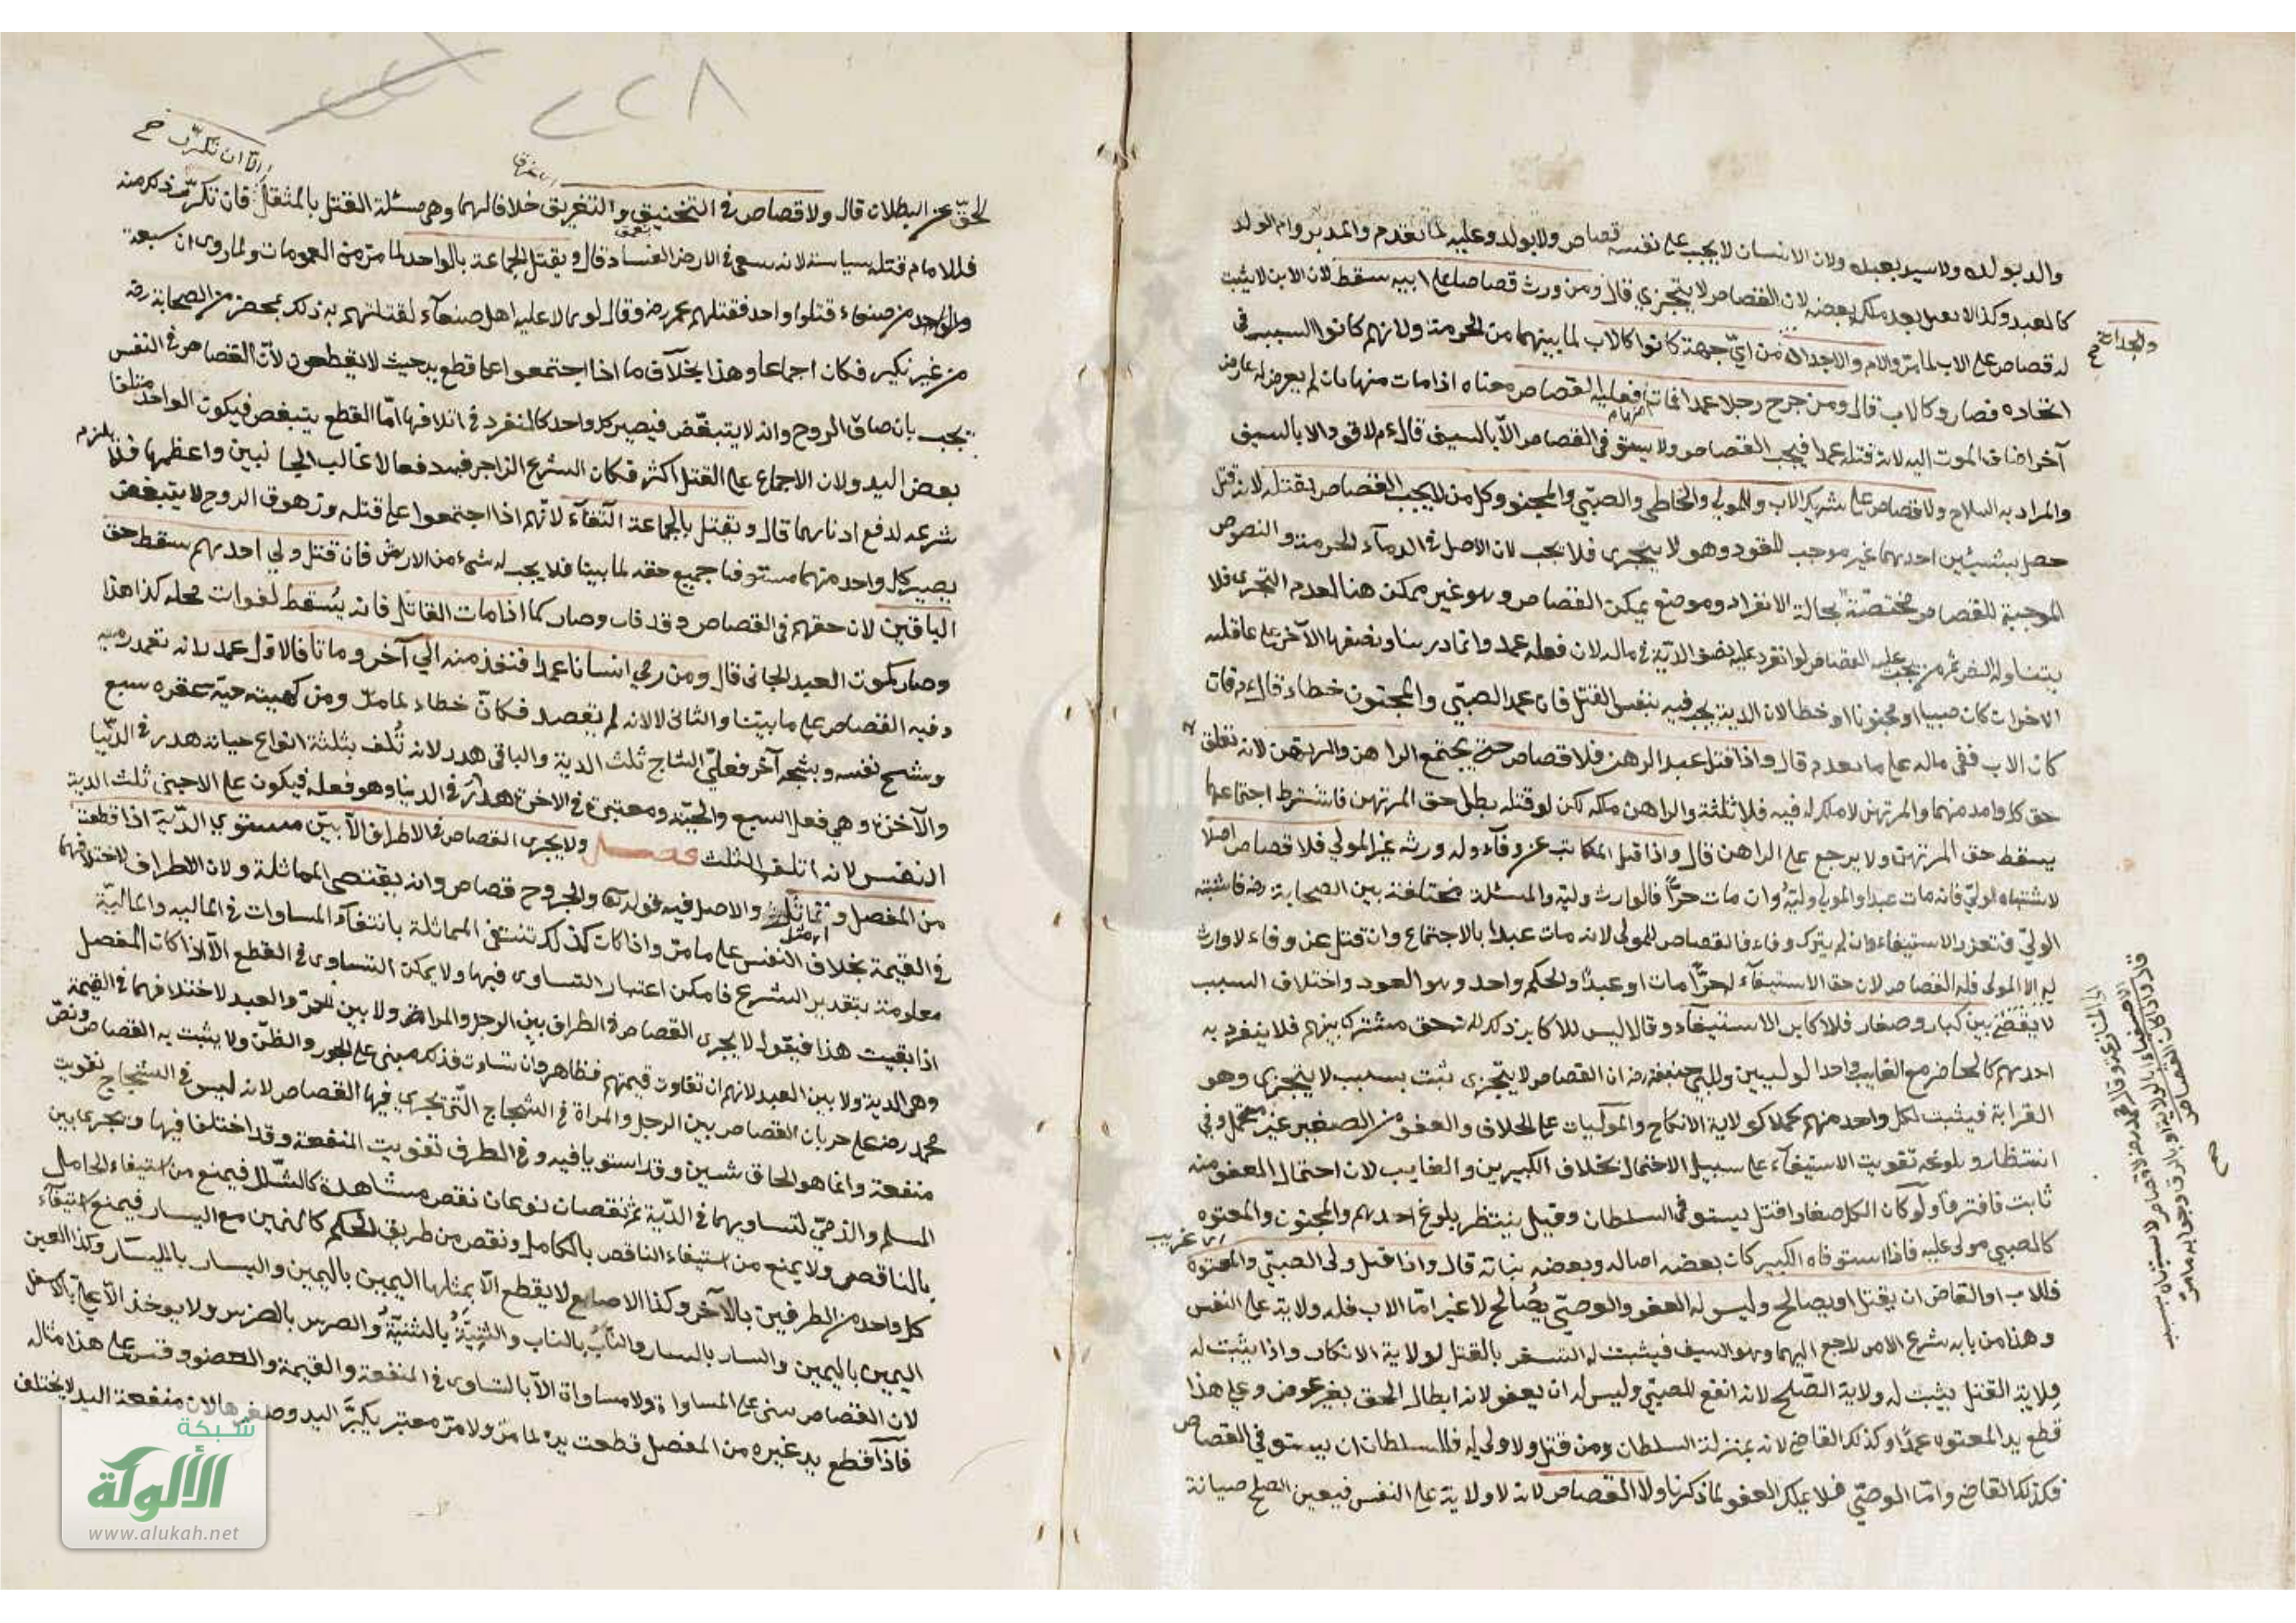 والد بولده ولا سيد بعبده ولان الانسان لا يجب على نفسه قصاص ولا بولده وعليه لما تقدم والمدبر وام الولد
كالعبد وكذا لا يقتل بعبد ملك بعضه لان القصاص لا يتجزي قال ومن ورث قصاصا على ابيه سقط لان الابن لا يثبت
له قصاص على الاب لما مر والام والاجداد من اي جهة كانوا كالاب لما بينهما من الحرمة ولانهم كانوا السبب في
اتحاده فصار وكالاب قال ومن جرح رجلا عمدا فمات فعليه القصاص معناه اذا مات منها بان لم يعرض له عارض
آخر اضاف الموت اليه لانه قتله عمدا فيجب القصاص ولا يستوفى القصاص الا بالسيف قال ءم لا قود الا بالسيف
والمراد به السلاح ولا قصاص على شريك الاب والمولي والخاطي والصبي والمجنون وكل من لا يجب القصاص بقتله لانه قتل
حصل بشيئين احدهما غير موجب للقود وهو لا يتجزى فلا يجب لان الاصل في الدمآء الحرمة والنصوص
الموجبة للقصاص مختصة بحالة الانفراد وموضع يمكن القصاص وهو غير ممكن هنا لعدم التجزي فلا
يتناوله النص ثم من يجب عليه القصاص لو انفرد عليه نصف الدية في ماله لان فعله عمد ونصفها الآخر على عاقلة
الاخر ان كان صبيا او مجنونا او خطا لان الدية يجب فيه بنفس القتل فان عمد الصبي والمجنون خطاء قال فان
كان الاب ففي ماله على ما تقدم قال واذا قتل عبد الرهن فلا قصاص حتى يجتمع الراهن والمرتهن لانه تعلق به
حق كل واحد منهما والمرتهن لا ملك له فيه فلا ثلثة والراهن ملكه لكن لو قتله بطل حق المرتهن فاشترط اجتماعهما
يسقط حق المرتهن ولا يرجع على الراهن قال واذا قتل المكاتب عن وفآء وله ورثة غير المولي فلا قصاص اصلا
لاشتباه الولي فانه مات عبدا والمولي وليه وان مات حرا فالوارث وليه والمسئلة مختلفة بين الصحابة رضه فاشتبه
الولي فتعذر الاستيفاء وان لم يترك وفاء فالقصاص للمولى لانه مات عبدا بالاجتماع وان قتل عن وفاء لا وارث
له الا المولى فله القصاص لان حق الاستيفآء له حرا مات او عبدا والحكم واحد وهو العود واختلاف السبب
لا يفضى بين كبار وصغار فللاكابر الاستيفآء وقالا ليس للاكابر ذلك لانه حق مشترك بينهم فلا ينفرد به
احدهم كالحاضر مع الغايب واحد الموليين ولابي حنيفة رضه ان القصاص لا يتجزى ثبت بسبب لا يتجزى وهو
القرابة فيثبت لكل واحد منهم كملا كولاية الانكاح على الخلاف والعفو من الصغير غير محتمل وفي
انتظار بلوغه تفويت الاستيفآء على سبيل الاحتمال بخلاف الكبيرين والغايب لان احتمال العفو منه
ثابت فافترقا ولو كان الكل صغارا قيل يستوفى السلطان وقيل ينتظر بلوغ احدهم والمجنون والمعتوه
كالصبي مولى عليه فاذا استوفاه الكبير كان بعضه اصالة وبعضه نيابة قال واذا قتل ولى الصبي والمعتوه
فللاب او القاضي ان يقتل او يصالح وليس له العفو والوصي يصالح لا غير اما الاب فله ولاية على النفس
وهذا من بابه شرع الامر راجع اليهما وهو السيف فيثبت له التشفى بالقتل لولاية الانكاح واذا يثبت له
ولاية القتل يثبت له ولاية الصلح لانه انفع للصبي وليس له ان يعفو لانه ابطال الحق بغير عوض وعلى هذا
قطع يد المعتوه عمدا وكذلك القاضي لانه بمنزلة السلطان ومن قتل ولا ولي له فللسلطان ان يستوفي القصاص
فكذلك القاضي واما الوصي فلا يملك العفو لما ذكرنا ولا القصاص لانه لا ولاية على النفس فيعين الصلح صيانة
والجدات صح
اى قريب
٢٢٨
الا ان تكرر صح
لحق عن البطلان قال ولا قصاص في التخنيق والتغريق خلافا لهما وهي مسئلة القتل بالمثقل فان تكرر ذكر منه
فللامام قتله سياسة لانه سعى في الارض بالفساد قال ويقتل الجماعة بالواحد لما مر من العمومات ولما روى ان سبعة
من صنعاء قتلوا واحد فقتلهم عمر رضه وقال لو تمالا عليه اهل صنعآء لقتلتهم به ذلك بمحضر من الصحابة رضه
من غير نكير فكان اجماعا وهذا بخلاف ما اذا اجتمعوا على قطع يد حيث لا يقطعون لان القصاص في النفس
يجب بانزهاق الروح وانه لا يتبعض فيصير كل واحد كالمنفرد في اتلافها اما القطع يتبعض فيكون الواحد متلفا
بعض اليد ولان الاجماع على القتل اكثر فكان الشرع الزاجر فيه دفعا لاغالب الجانبين واعظمها فلا يلزم
شرعه لدفع ادناهما قال ويقتل بالجماعة اكتفآء لانهم اذا اجتمعوا على قتله وزهوق الروح لا يتبعض
يصير كل واحد منهما مستوفيا جميع حقه لما بينا فلا يجب له شيء من الارش فان قتل ولي احدهم سقط حق
الباقين لان حقهم في القصاص وقد فات وصار كما اذا مات القاتل فانه يسقط لفوات محله كذا هذا
وصار كموت العبد الجانى قال ومن رمي انسانا عمدا فنفذ منه الي آخر وماتا فالاول عمد لانه تعمد رميه
وفيه القصاص على ما بينا والثانى لا لانه لم يقصد فكان خطاء لما مر ومن نهشته حية عقره سبع
وشج نفسه وشجه آخر فعلى الشاج ثلث الدية والباقى هدر لانه تلف بثلثة انواع جناية هدر في الدنيا
والآخرة وهي فعل السبع والحية ومعتبرة في الاخرة هدر في الدنيا وهو فعله فيكون على الاجنبى ثلث الدية
النفس لانه اتلف الثلث فصل ولا يجرى القصاص في الاطراف الا بين مستوى الدية اذا قطعت
من المفصل وتماثلت والاصل فيه قوله تعالى والجروح قصاص وانه يقتضى المماثلة ولان الاطراف لاختلافهما
في القيمة بخلاف النفس على ما مر واذا كان كذلك تنتفى المماثلة بانتفآء المساوات في المالية والمالية
معلومة بتقدير الشرع فامكن اعتبار التساوى فيها ولا يمكن التساوى في القطع الا اذا كان المفصل
اذا بقيت هذا فيقول لا يجرى القصاص في الطرف بين الرجل والمراة ولا بين الحر والعبد لاختلافهما في القيمة
وهى الدية ولا بين العبد لانهم ان تفاوت قيمتهم فظاهر وان تساوت فذلك مبنى على الحزر والظن ولا يثبت به القصاص ونص
محمد رضه على جريان القصاص بين الرجل والمراة في الشجاج التى تجرى فيها القصاص لانه ليس في الشجاج تفويت
منفعة وانما هو الحاق شين وقد استويا فيه وفي الطرف تفويت المنفعة وقد اختلفا فيها ويجرى بين
المسلم والذمى لتساويهما في الدية ثم النقصان نوعان نقص مشاهدة كالشلل فيمنع من استيفاء الكامل
بالناقص ولا يمنع من استيفاء الناقص بالكامل ونقص من طريق الحكم كاليمين مع اليسار فيمنع استيفآء
كل واحد من الطرفين بالآخر وكذا الاصابع لا يقطع الا بمثلها اليمين باليمين واليسار باليسار وكذا العين
اليمين باليمين واليسار باليسار والناب بالناب والثنية بالثنية والضرس بالضرس ولا يوخذ الاعلى بالاسفل
لان القصاص مبنى على المساواة ولا مساواة الا بالتساوى في المنفعة والقيمة والعضو وقس على هذا مثاله
فاذا قطع يد غيره من المفصل قطعت يده لما مر ولا معتبر بكبر اليد وصغرها لان منفعة اليد لا يختلف
شبكة
الألوكة
www.alukah.net